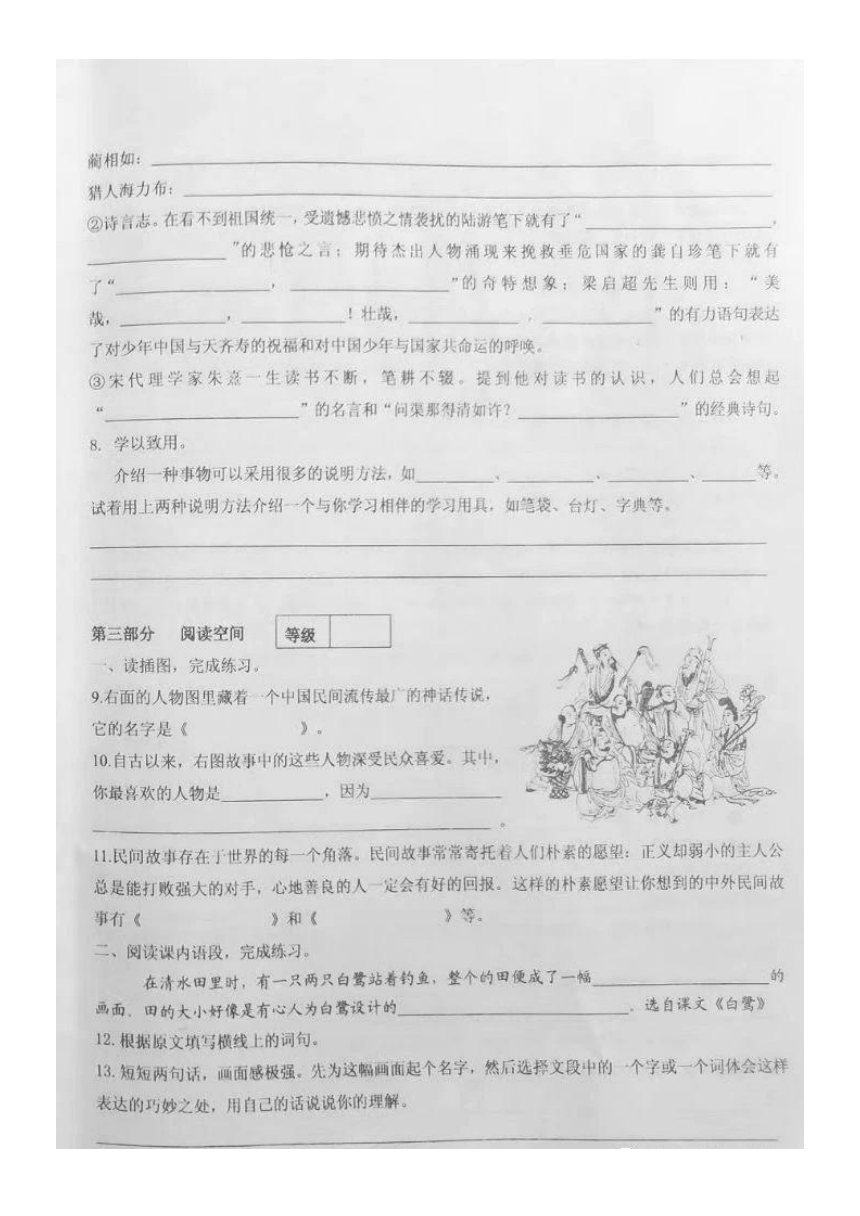 蔺相如：
猎人海力布：
②诗言志。在看不到祖国统一，受遗憾悲愤之情袭扰的陆游笔下就有了“____________，
____________”的悲怆之言；期待杰出人物涌现来挽救垂危国家的龚自珍笔下就有
了“____________，____________”的奇特想象；梁启超先生则用：“美
哉，____________，____________！壮哉，____________，____________”的有力语句表达
了对少年中国与天齐寿的祝福和对中国少年与国家共命运的呼唤。
③宋代理学家朱熹一生读书不断，笔耕不辍。提到他对读书的认识，人们总会想起
“____________”的名言和“问渠那得清如许？____________”的经典诗句。
8. 学以致用。
介绍一种事物可以采用很多的说明方法，如________、________、________、______等。
试着用上两种说明方法介绍一个与你学习相伴的学习用具，如笔袋、台灯、字典等。
第三部分 阅读空间 等级
一、读插图，完成练习。
9.右面的人物图里藏着一个中国民间流传最广的神话传说，
它的名字是《 》。
10.自古以来，右图故事中的这些人物深受民众喜爱。其中，
你最喜欢的人物是____________，因为____________
____________。
11.民间故事存在于世界的每一个角落。民间故事常常寄托着人们朴素的愿望：正义却弱小的主人公
总是能打败强大的对手，心地善良的人一定会有好的回报。这样的朴素愿望让你想到的中外民间故
事有《 》和《 》等。
二、阅读课内语段，完成练习。
在清水田里时，有一只两只白鹭站着钓鱼，整个的田便成了一幅____________的
画面。田的大小好像是有心人为白鹭设计的____________。选自课文《白鹭》
12. 根据原文填写横线上的词句。
13. 短短两句话，画面感极强。先为这幅画面起个名字，然后选择文段中的一个字或一个词体会这样
表达的巧妙之处，用自己的话说说你的理解。